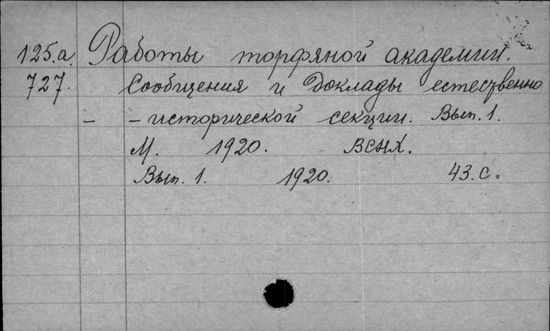 125.а Работы торфяной академии.
727. Сообщения и доклады естественно
- -исторической секции. Вып. 1.
М. 1920. ВСНХ.
Вып. 1. 1920. 43.с.